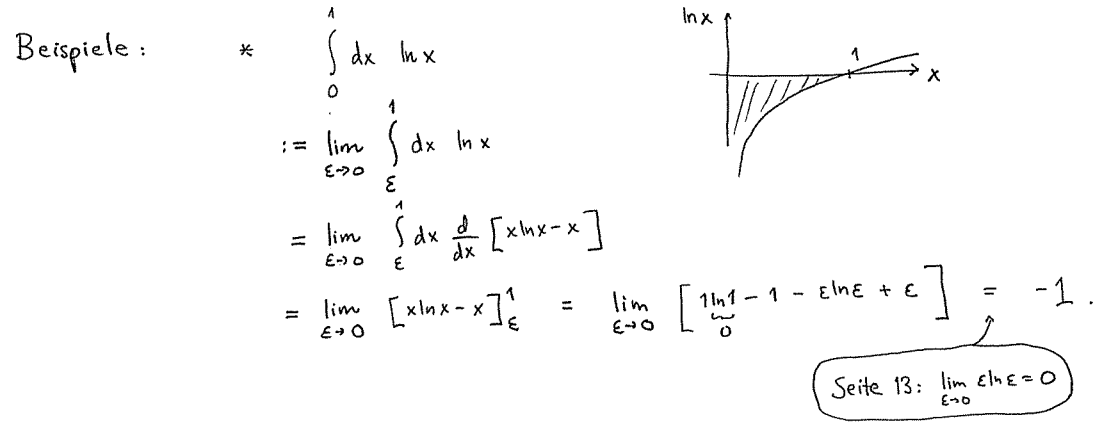 Beispiele : * ∫₀¹ dx ln x
ln x
1
x
:= lim_{ε→0} ∫_ε^1 dx ln x
= lim_{ε→0} ∫_ε^1 dx d/dx [x ln x - x]
= lim_{ε→0} [x ln x - x]_ε^1 = lim_{ε→0} [1 ln 1 - 1 - ε ln ε + ε] = -1 .
0
Seite 13: lim_{ε→0} ε ln ε = 0